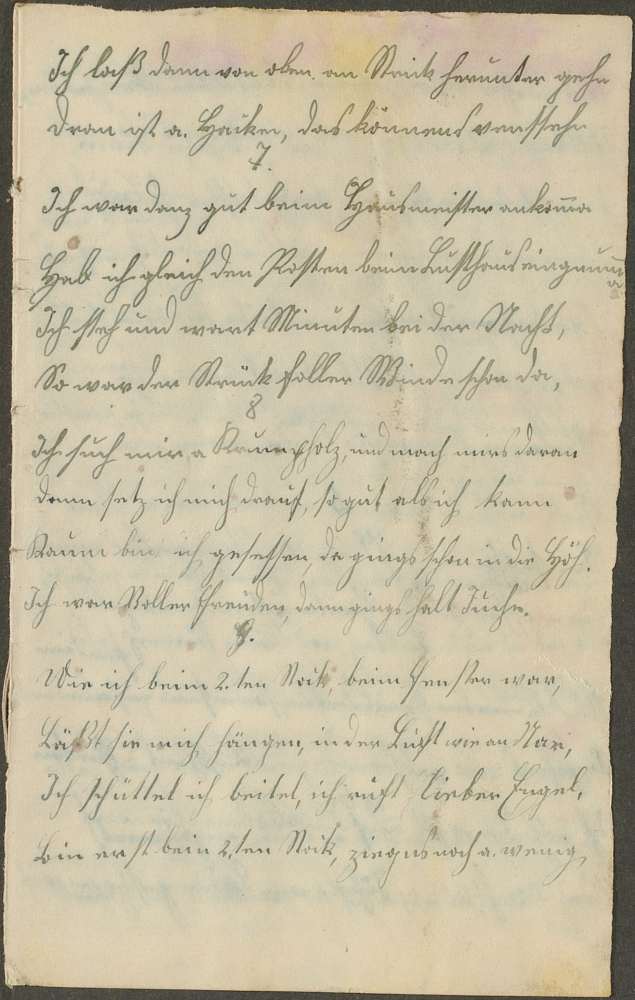 Ich laß dann von oben an Strick herunter gehn
Dran ist a. Hacken, das könnens verstehn
7.
Ich war danz gut beim Hausmeister ankoma
Hab ich gleich den Posten beim Lusthaus eingnuma
Ich steh und wart Minuten bei der Nacht,
So war der Strück foller Winde schon da,
8
Ich such mir a Krumpholz, und mach mirs daran
dann setz ich mich drauf, so gut als ich kann
Kaum bin ich gesessen, da gings schon in die Höh.
Ich war Voller Freuden, dann gings halt Juche.
9.
Wie ich beim 2.ten Stock, beim Fenster war,
Läßt sie mich hängen, in der Luft wie an Nar,
Ich schüttel ich beitel, ich ruft lieber Engel,
bin erst bein 2.ten Stock, ziegns noch a. wenig